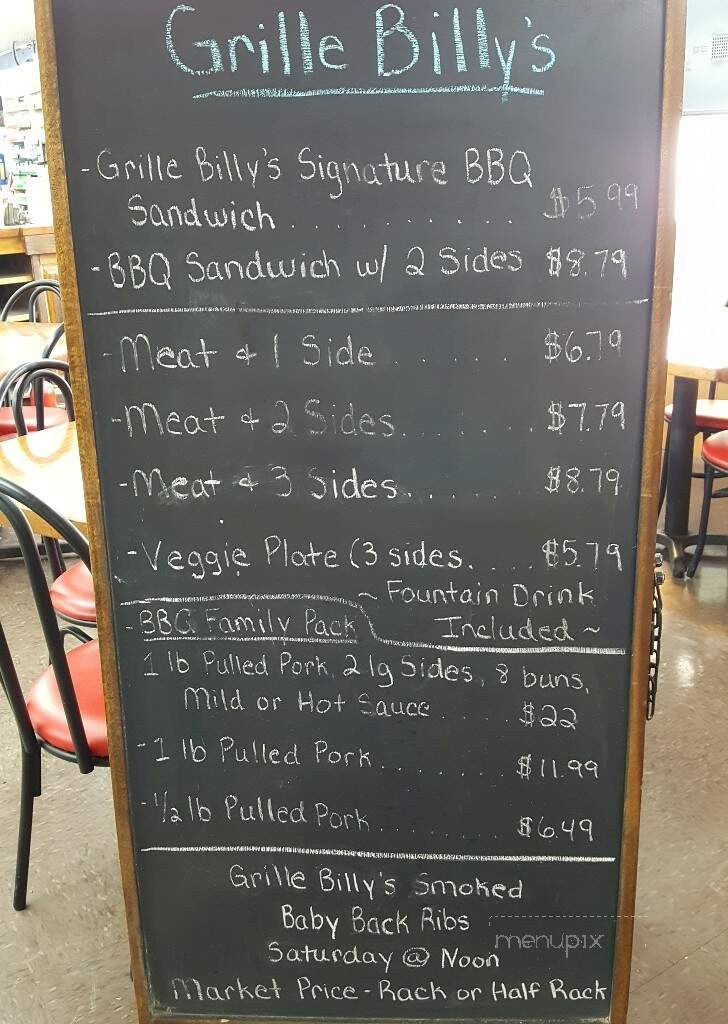 Grille Billy's
- Grille Billy's Signature BBQ
Sandwich . . . . . . . . . . . $5.99
- BBQ Sandwich w/ 2 Sides $8.79
- Meat & 1 Side . . . . . . $6.79
- Meat & 2 Sides . . . . . . $7.79
- Meat & 3 Sides . . . . . . $8.79
- Veggie Plate (3 sides. . . . . $5.79
~ Fountain Drink
Included ~
- BBQ Family Pack
1 lb Pulled Pork, 2 lg Sides, 8 buns,
Mild or Hot Sauce . . . . . $22
- 1 lb Pulled Pork . . . . . . . $11.99
- 1/2 lb Pulled Pork . . . . . . . . $6.49
Grille Billy's Smoked
Baby Back Ribs
menupix
Saturday @ Noon
Market Price - Rack or Half Rack